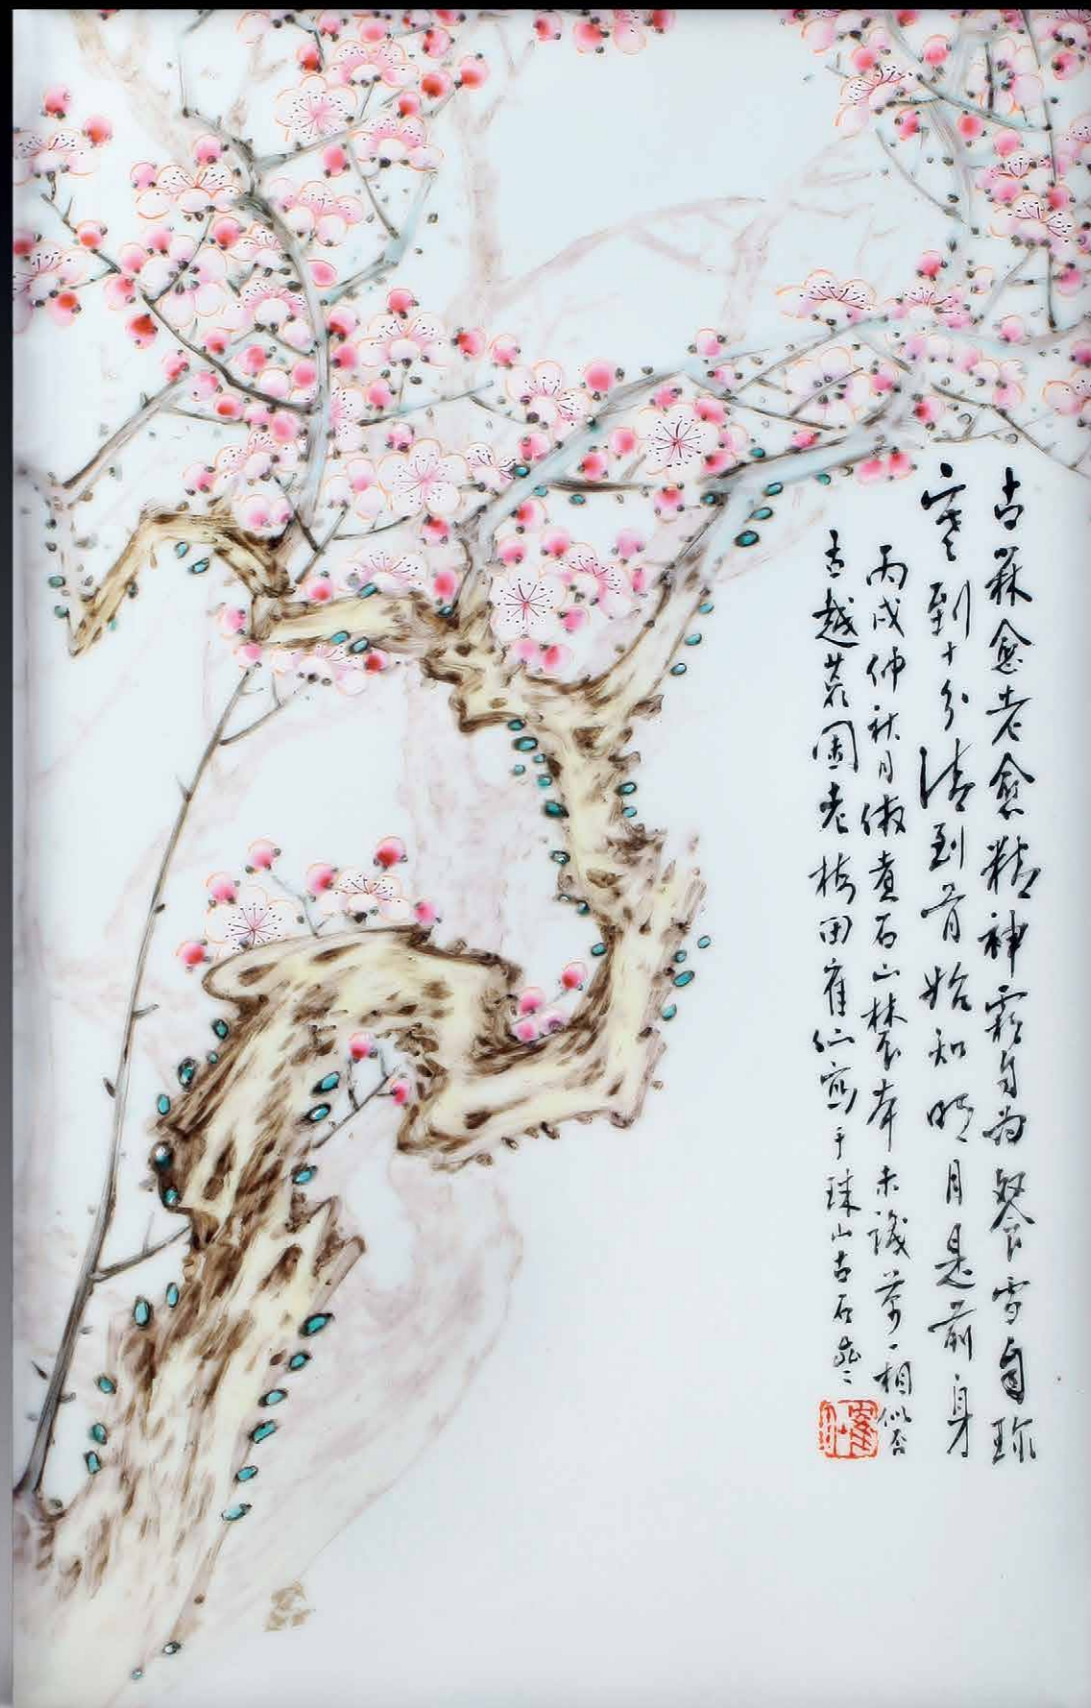 古蘇愈老愈精神霜自為餐雪自珎
寒到十分清到骨始知明月是前身
丙戌仲秋月倣煮石山農本未識芳一相似否
古越蕺園老梅田寉仙寫于珠山古石